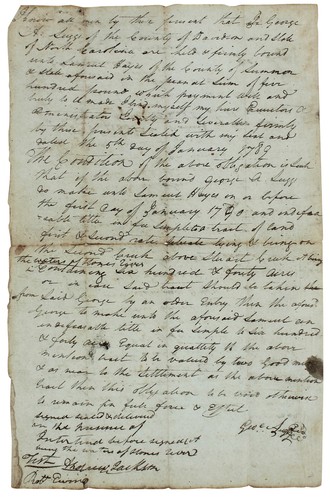 Know all men by these presents that I George
A Sugg of the County of Davidson and State
of North Carolina are held & firmly bound
unto Samuel Hayes of the County of Sumner
& State aforesaid in the penal Sum of five
hundred pound, which payment well and
truly to be made I bind myself my heirs Executors &
Administrators Jointly and Severally firmly
by these presents Sealed with my Seal and
dated the 5th day of January 1789
The Condition of the above obligation is Such
that if the above bound George A Sugg
do make unto Samuel Hayes on or before
the first day of January 1790 and indefea
seable title in fee Simple to a tract of land
first & Second rate situate lying & being on
the second Creek above Stuarts Creek
the waters of Stones River
Containing Six hundred & forty acres
or in case Said tract should be taken
from Said George by an older Entry then the aforesd
George to make unto the aforesaid Samuel an
indefeasable title in fee Simple to Six hundred
& forty acres Equal in quallity to the above
mentioned tract to be valued by two Good men
& as near to the Settlement as the above mention
tract then this obligation to be void otherwise
to remain in full force & Effect
signed sealed & delivered
in the presence of
Interlined before signed
being the waters of stones river
Test Andrew Jackson
Robt Ewing
Geo. A Sugg